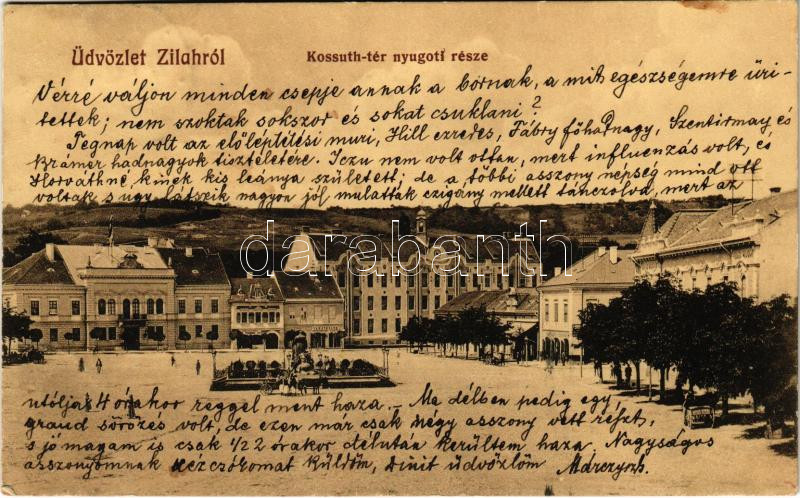 Üdvözlet Zilahról
Kossuth-tér nyugoti része
Vérré váljon minden csepje annak a bornak, a mit egészségemre üri-
tettek; nem szoktak sokszor és sokat csuklani?
Tegnap volt az előléptetési muri, Hill ezredes, Fábry főhadnagy, Szentirmay és
Kramer hadnagyok tiszteletére. Iczu nem volt ottan, mert influenzás volt, és
Horváthné, kinek kis leánya született; de a többi asszony népség mind ott
voltak s ugy látszik nagyon jól mulattak czigány mellett tánczolva, mert az
darabanth
utólja 4 órakor reggel ment haza. - Ma délben pedig egy
grand sörözés volt, de ezen már csak négy asszony vett részt,
s jó magam is csak 1/2 2 órakor délután kerültem haza. Nagyságos
asszonyomnak kézcsókomat küldöm, üdvözlöm